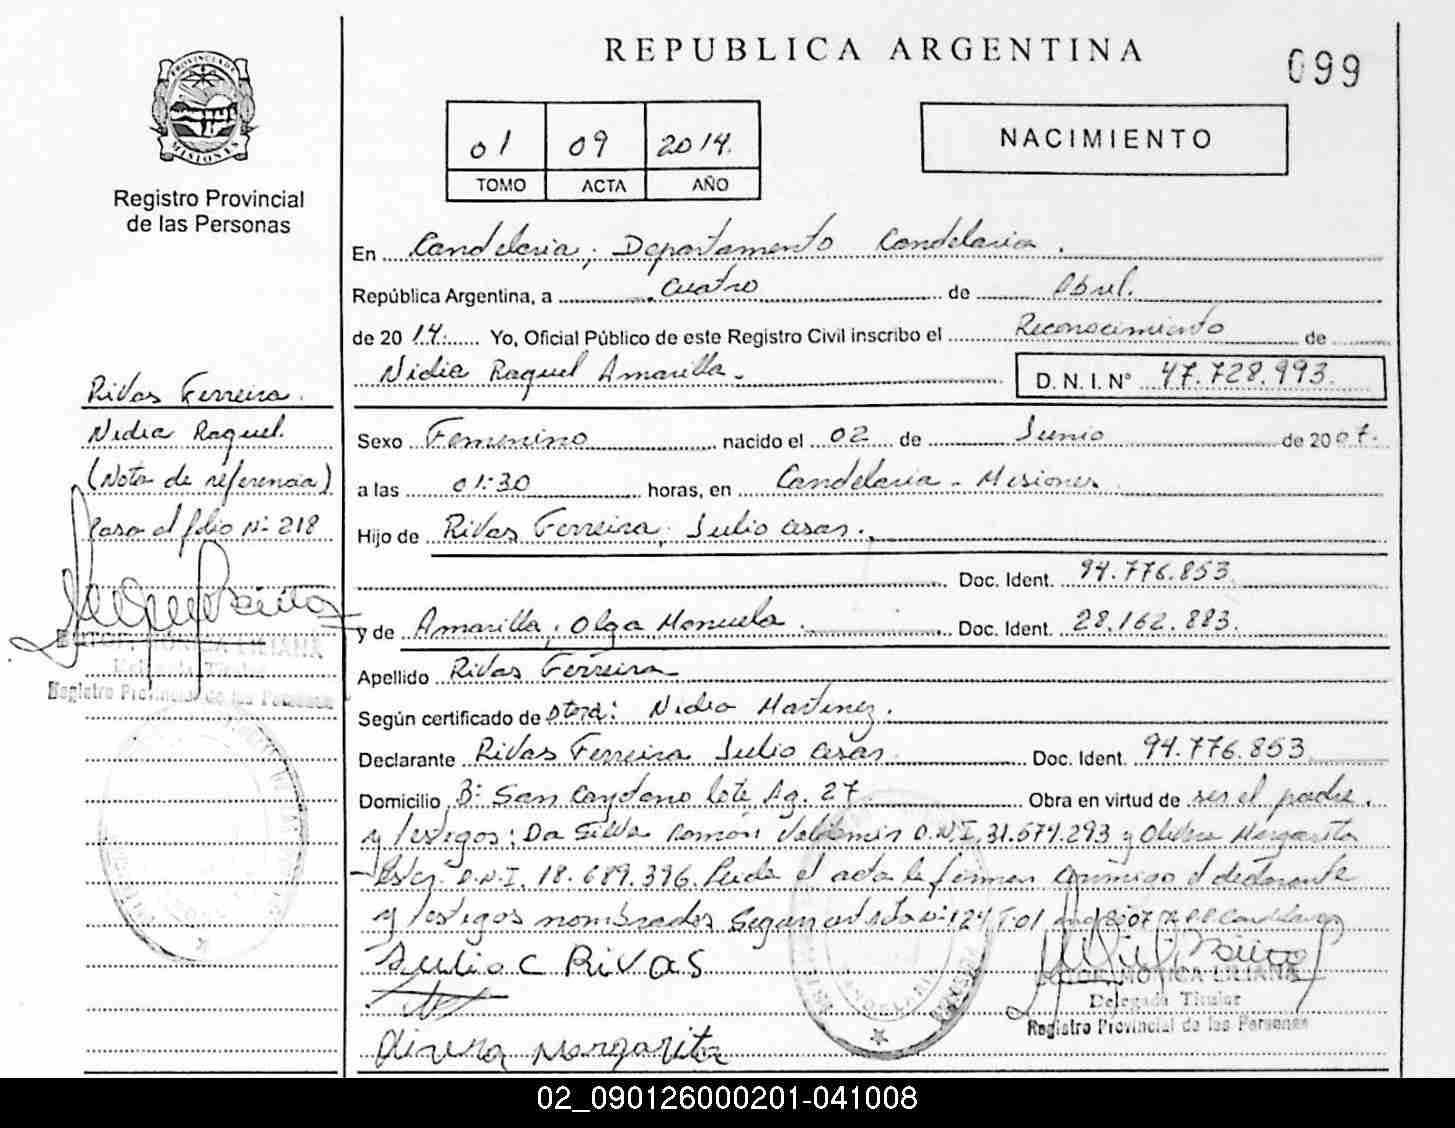 REPUBLICA ARGENTINA
099
PROVINCIA DE
MISIONES
01 09 2014.
TOMO ACTA AÑO
NACIMIENTO
Registro Provincial
de las Personas
En Candelaria, Departamento Candelaria.
República Argentina, a cuatro de Abril.
de 2014. Yo, Oficial Público de este Registro Civil inscribo el Reconocimiento de
Nidia Raquel Amarilla. D.N.I. Nº 47.728.993.
Rivas Ferreira.
Nidia Raquel.
(Nota de referencia)
Pasa al folio Nº 218
Sexo Femenino nacido el 02 de Junio de 2007.
a las 01:30 horas, en Candelaria - Misiones
Hijo de Rivas Ferreira, Julio cesar.
Doc. Ident. 94.776.853
y de Amarilla, Olga Manuela. Doc. Ident. 28.162.883.
Apellido Rivas Ferreira
Según certificado de Nidia Martinez.
Declarante Rivas Ferreira Julio cesar. Doc. Ident. 94.776.853
Domicilio Bº San Cayetano lote Ag. 27 Obra en virtud de ser el padre.
y testigos: Da Silva Ramón D.N.I. 31.574.293 y Margarita
D.N.I. 18.689.396. Leida el acta la firman conmigo el declarante
y testigos nombrados Segun Nº 124 Tº 01
Julio C RIVAS
Margarita
MONICA LILIANA
Delegada Titular
Registro Provincial de las Personas
MONICA LILIANA
Delegada Titular
Registro Provincial de las Personas
CANDELARIA
02_090126000201-041008